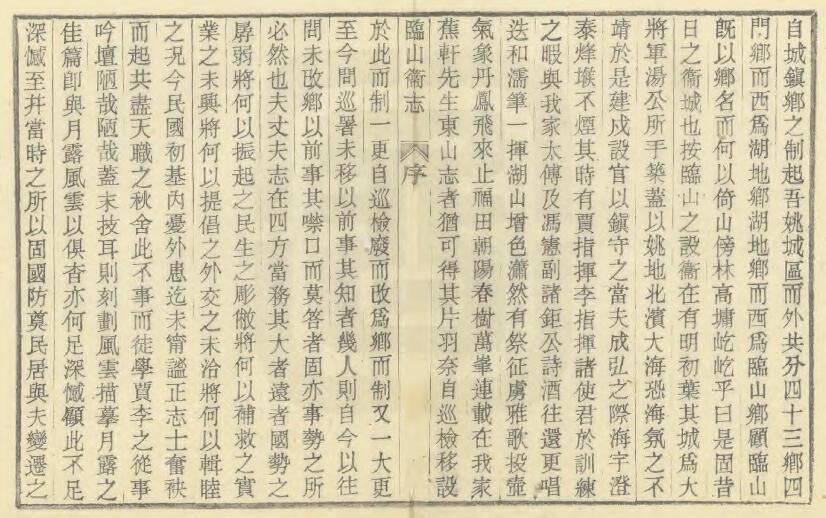 自城鎮鄉之制起吾姚城區而外共分四十三鄉四
門鄉而西爲湖地鄉湖地鄉而西爲臨山鄉顧臨山
旣以鄉名而何以倚山傍林高墉屹屹乎曰是固昔
日之衞城也按臨山之設衞在有明初葉其城爲大
將軍湯公所手築蓋以姚地北濱大海恐海氛之不
靖於是建戍設官以鎮守之當夫成弘之際海宇澄
泰烽堠不煙其時有賈指揮李指揮諸使君於訓練
之暇與我家太傅及馮憲副諸鉅公詩酒往還更唱
迭和濡筆一揮湖山增色瀟然有祭征虜雅歌投壺
氣象丹鳳飛來止福田朝陽春樹萬峯連載在我家
蕉軒先生東山志者猶可得其片羽奈自巡檢移設
臨山衞志 序
於此而制一更自巡檢廢而改爲鄉而制又一大更
至今問巡署未移以前事其知者幾人則自今以往
問未改鄉以前事其噤口而莫答者固亦事勢之所
必然也夫丈夫志在四方當務其大者遠者國勢之
孱弱將何以振起之民生之彫敝將何以補救之實
業之未興將何以提倡之外交之未洽將何以輯睦
之况今民國初基內憂外患迄未甯謐正志士奮袂
而起共盡天職之秋舍此不事而徒學賈李之從事
吟壇陋哉陋哉蓋末技耳則刻劃風雲描摹月露之
佳篇卽與月露風雲以俱杳亦何足深憾顧此不足
深憾至幷當時之所以固國防奠民居與夫變遷之